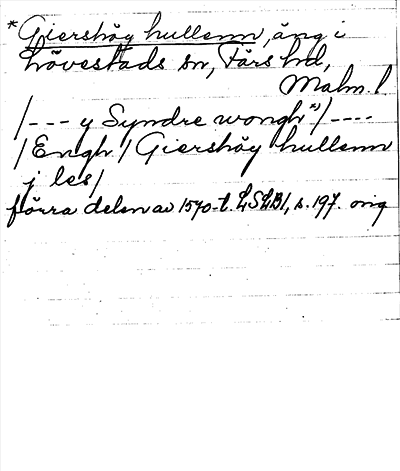 *Giershøy hullenn, äng i
Lövestads sn, Färs hd,
Malm. l.
/--- y Syndre wongh ⁿ)/----
/Engh/ Giershøy hullenn
j les/
förra delen av 1570-t. LSLB1, s. 197. orig